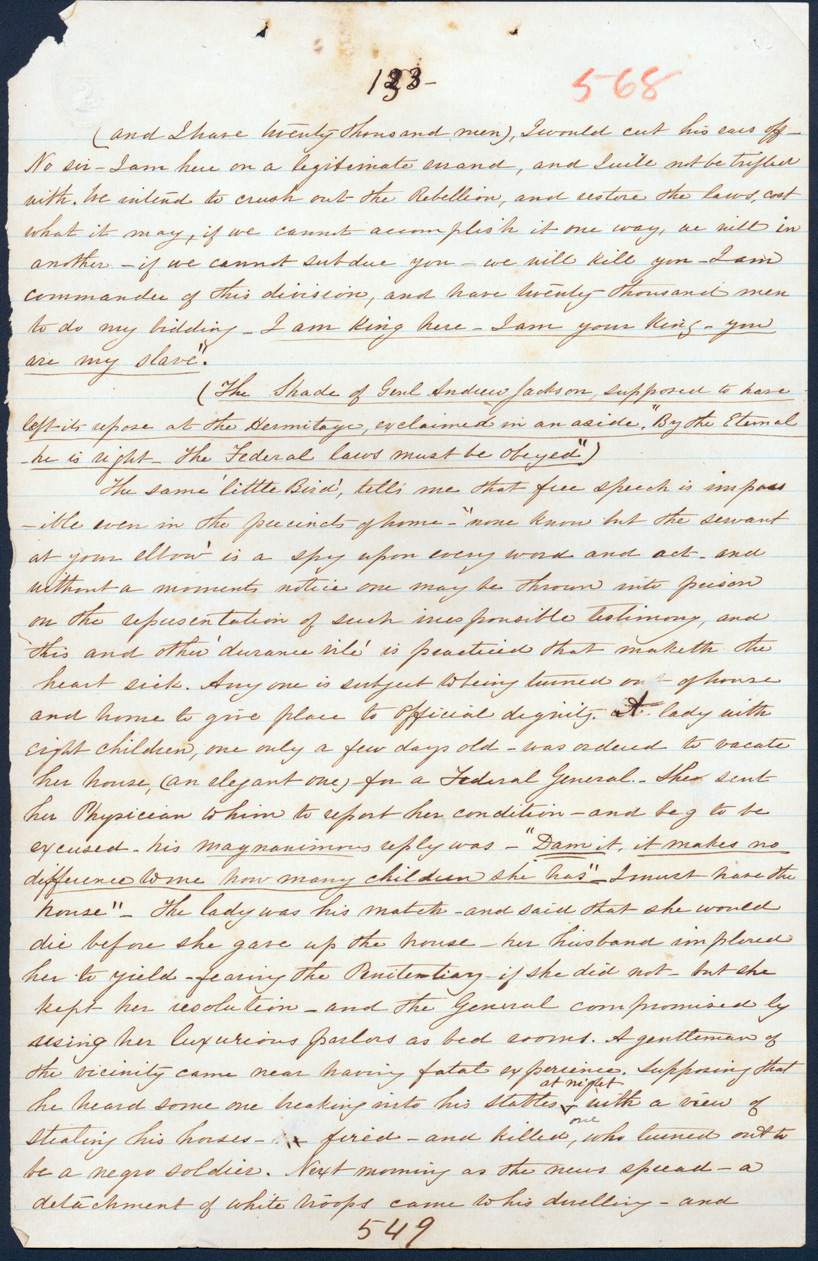 133-
568
(and I have twenty thousand men), I would cut his ears off-
No sir - I am here on a legitimate errand, and I will not be trifled
with. We intend to crush out the Rebellion, and restore the laws, cost
what it may, if we cannot accomplish it one way, we will in
another - if we cannot subdue you - we will kill you - I am
commander of this division, and have twenty thousand men
to do my bidding - I am King here - I am your King - you
are my slave".
(The Shade of Genl Andrew Jackson, supposed to have
left its repose at the Hermitage, exclaimed in an aside, "By the Eternal
- he is right - The Federal laws must be obeyed")
The same 'little Bird', tells me that free speech is imposs
-ible even in the precincts of home - "none know but the servant
at your elbow' is a spy upon every word and act - and
without a moments notice one may be thrown into prison
on the representation of such irresponsible testimony, and
this and other 'durance vile' is practiced that maketh the
heart sick. Any one is subject to being turned out of house
and home to give place to official dignity. A lady with
eight children, one only a few days old - was ordered to vacate
her house, (an elegant one) - for a Federal General - She sent
her Physician to him to report her condition - and beg to be
excused - his magnanimous reply was - "Dam it, it makes no
difference to me how many children she has" - I must have the
house" - The lady was his match - and said that she would
die before she gave up the house - her husband implored
her to yield - fearing the Penitentiary if she did not - but she
kept her resolution - and the General compromised by
using her luxurious parlors as bed rooms. A gentleman of
the vicinity came near having fatal experience. Supposing that
he heard some one breaking into his stables at night - with a view of
stealing his horses - fired - and killed one, who turned out to
be a negro soldier. Next morning as the news spread - a
detachment of white troops came to his dwelling - and
549